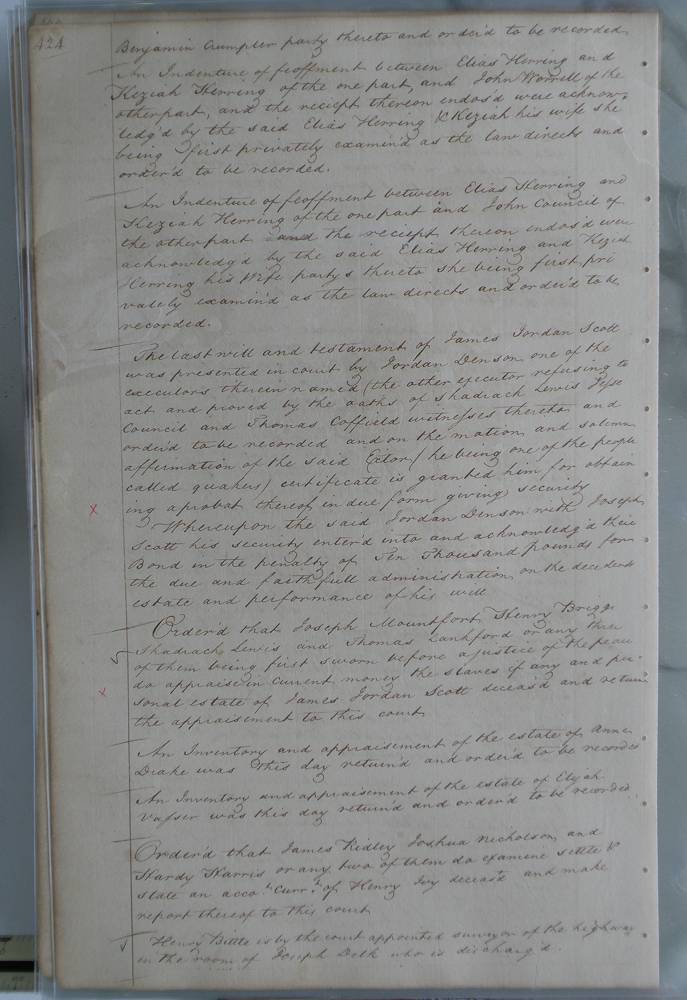 424
Benjamin Crumpler party thereto and order'd to be recorded
An Indenture of feoffment between Elias Herring and
Keziah Herring of the one part, and John Worrell of the
other part, and the reciept thereon endos'd were acknow-
ledg'd by the said Elias Herring & Keziah his wife she
being first privately examin'd as the law directs and
order'd to be recorded.
An Indenture of feoffment between Elias Herring and
Keziah Herring of the one part and John Council of
the other part and the reciept thereon endos'd were
acknowledg'd by the said Elias Herring and Keziah
Herring his Wife partys thereto she being first pri
vately examin'd as the law directs and order'd to be
recorded.
The last will and testament of James Jordan Scott
was presented in court by Jordan Denson one of the
executors therein named (the other executor refusing to
act and proved by the oaths of Shadrach Lewis Jesse
Council and Thomas Coffield witnesses thereto and
order'd to be recorded and on the motion and solemn
affirmation of the said Ex'tor (he being one of the people
called quakers) certificate is granted him for obtain
ing a probat thereof in due form giving security
x
Whereupon the said Jordan Denson with Joseph
Scott his security enter'd into and acknowledg'd their
Bond in the penalty of Ten Thousand pounds for
the due and faithfull administration on the decedents
estate and performance of his will
Order'd that Joseph Mountfort Henry Briggs
Shadrach Lewis and Thomas Lankford or any three
of them being first sworn before a justice of the peace
do appraise in current money the slaves if any and per-
x
sonal estate of James Jordan Scott deceas'd and return
the appraisement to this court
An Inventory and appraisement of the estate of Anne
Drake was this day return'd and order'd to be recorded
An Inventory and appraisement of the estate of Elijah
Vasser was this day return'd and order'd to be recorded.
Order'd that James Ridley Joshua Nicholson and
Hardy Harris or any two of them do examine settle &
state an acco.t Curr.t of Henry Ivy deceas'd and make
report thereof to this court
Henry Bittle is by the court appointed surveyor of the highway
in the room of Joseph Delk who is discharg'd.